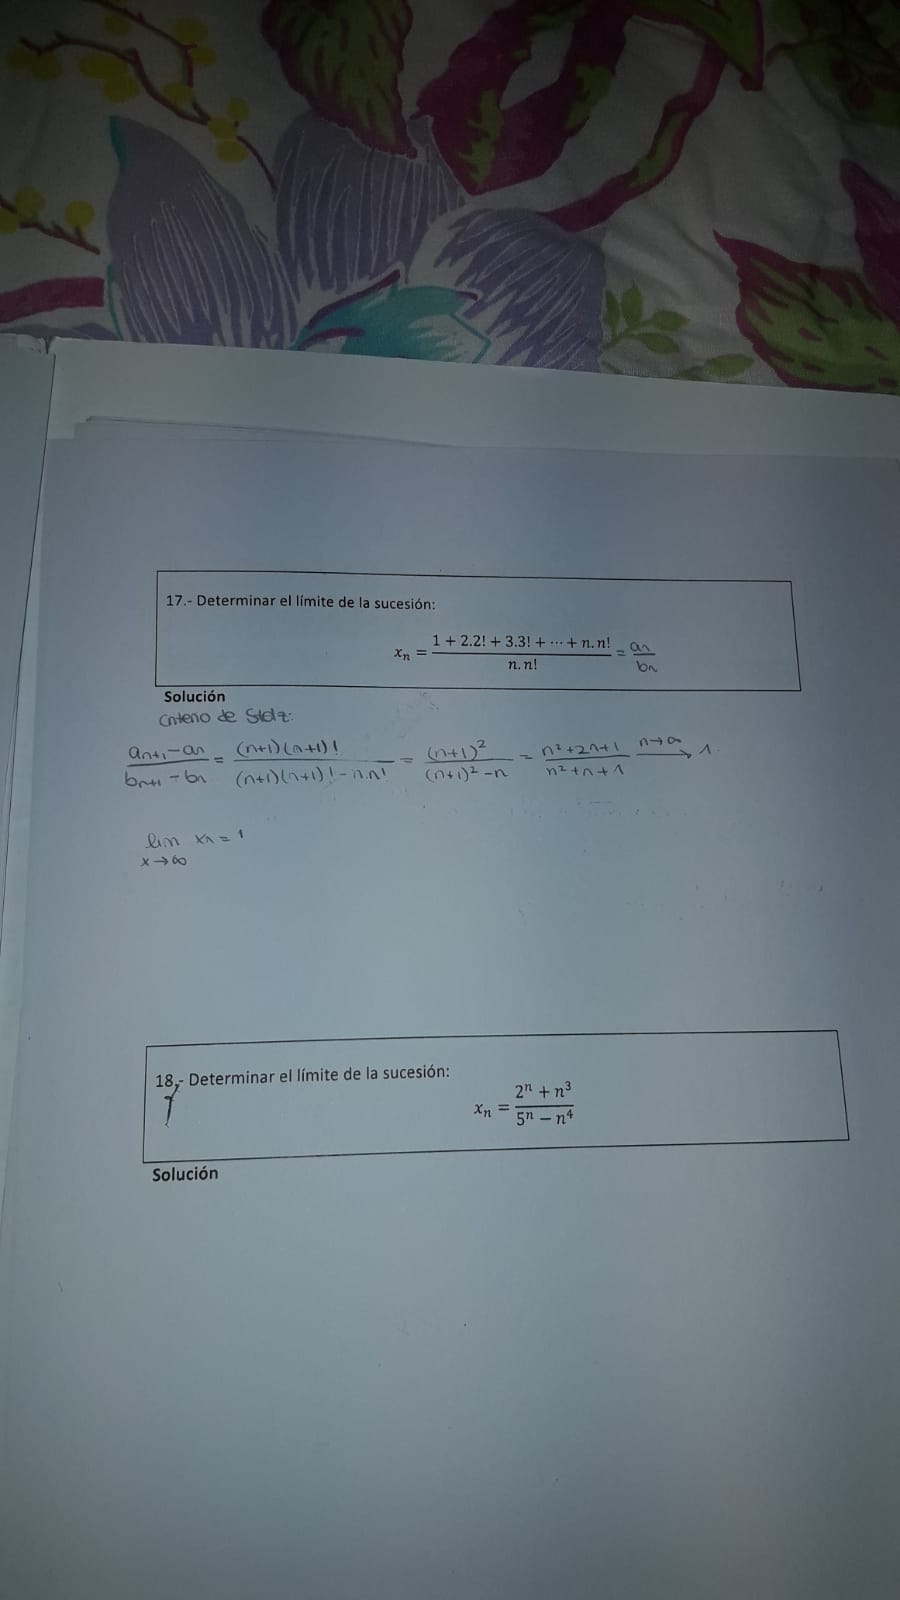 17.- Determinar el límite de la sucesión:
xₙ = (1 + 2.2! + 3.3! + ⋯ + n. n!)/(n. n!) = aₙ/bₙ
Solución
Criterio de Stolz:
(aₙ₊₁ - aₙ)/(bₙ₊₁ - bₙ) = ((n+1)(n+1)!)/((n+1)(n+1)! - n.n!) = (n+1)²/((n+1)² - n) = (n²+2n+1)/(n²+n+1) n→∞ ⟶ 1.
lim xₙ = 1
x→∞
18.- Determinar el límite de la sucesión:
xₙ = (2ⁿ + n³)/(5ⁿ − n⁴)
Solución